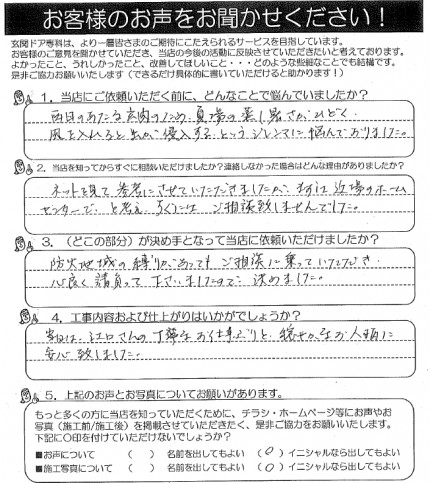 お客様のお声をお聞かせください！
玄関ドア専科は、より一層皆さまのご期待にこたえられるサービスを目指しています。
お客様のご意見を聞かせていただき、当店の今後の活動に反映させていただきたいと考えております。
よかったこと、うれしかったこと、改善してほしいこと・・・どのような些細なことでも結構です。
是非ご協力お願いいたします（できるだけ具体的に書いていただけると助かります！）
1．当店にご依頼いただく前に、どんなことで悩んでいましたか？
西日のあたる玄関のため、夏場の蒸し暑さがひどく
風を入れると虫が侵入する、というジレンマに悩んでおりました。
2．当店を知ってからすぐに相談いただけましたか？連絡しなかった場合はどんな理由がありましたか？
ネットを見て参考にさせていただきましたが、まずは近場のホーム
センターで、と考え、すぐにはご相談致しませんでした。
3．（どこの部分）が決め手となって当店に依頼いただけましたか？
防火地域の縛りがあってもご相談に乗っていただき、
心良く請負って下さいましたので、決めました。
4．工事内容および仕上がりはいかがでしょうか？
当日は、江口さんの丁寧なお仕事ぶりと、穏やかなお人柄に
安心致しました。
5．上記のお声とお写真についてお願いがあります。
もっと多くの方に当店を知っていただくために、チラシ・ホームページ等にお声やお
写真（施工前/施工後）を掲載させていただきたく、是非ご協力をお願いいたします。
下記に〇印を付けていただけないでしょうか？
■お声について （　） 名前を出してもよい （○）イニシャルなら出してもよい
■施工写真について （　） 名前を出してもよい （○）イニシャルなら出してもよい